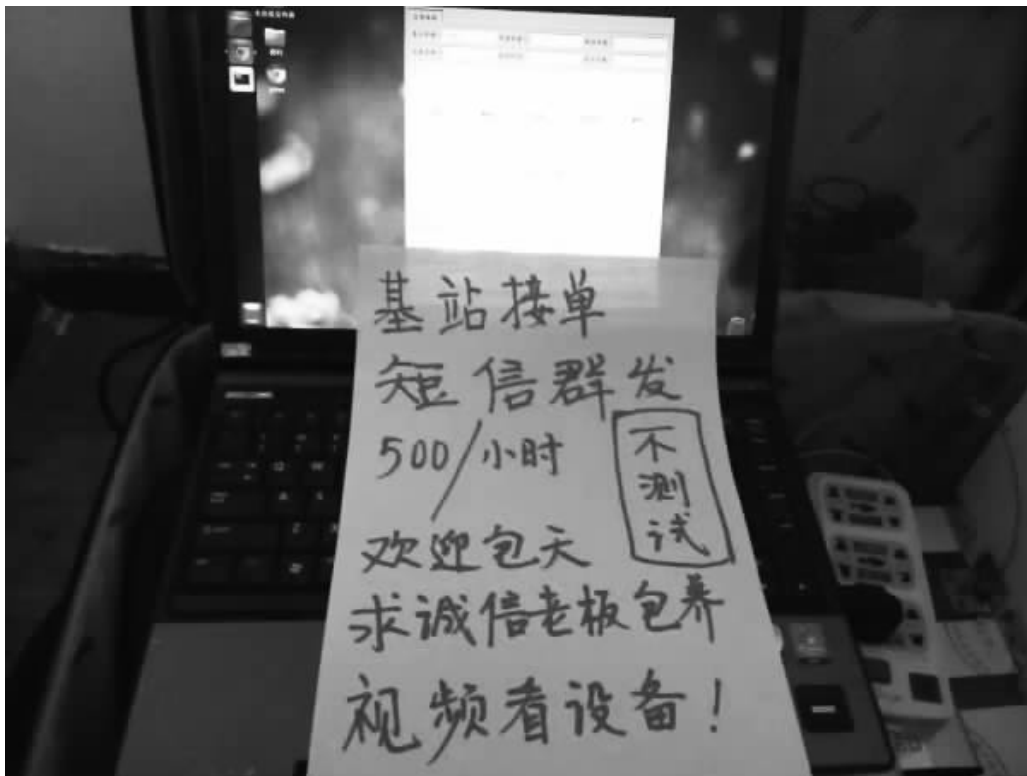 基站接单
短信群发
500/小时
不测试
欢迎包天
求诚信老板包养
视频看设备！